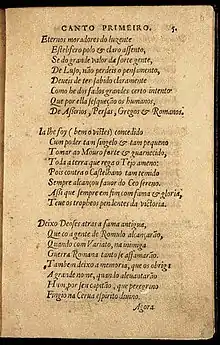 CANTO PRIMEIRO. 5.
Eternos moradores do luzente
Estelifero polo & claro assento,
Se do grande valor da forte gente,
De Luso, não perdeis o pensamento,
Deueis de ter sabido claramente
Como he dos fados grandes certo intento
Que por ella se esqueção os humanos,
De Assirios, Persas, Gregos & Romanos.
Ia lhe foy (bem o vistes) concedido
Cum poder tam singelo & tam pequeno
Tomar ao Mouro forte & guarnecido,
Toda a terra que rega o Tejo ameno:
Pois contra o Castelhano tam temido
Sempre alcançou fauor do Ceo sereno.
Assi que sempre em fim com fama & gloria,
Teue os tropheos pendentes da victoria.
Deixo Deoses atras a fama antiga,
Que co a gente de Romulo alcançarão,
Quando com Variato, na inimiga
Guerra Romana tanto se affamarão.
Tambem deixo a memoria, que os obriga
A grande nome, quando aleuantarão
Hum, por seu capitão, que peregrino
Fingio na Cerua espirito diuino.
Agora